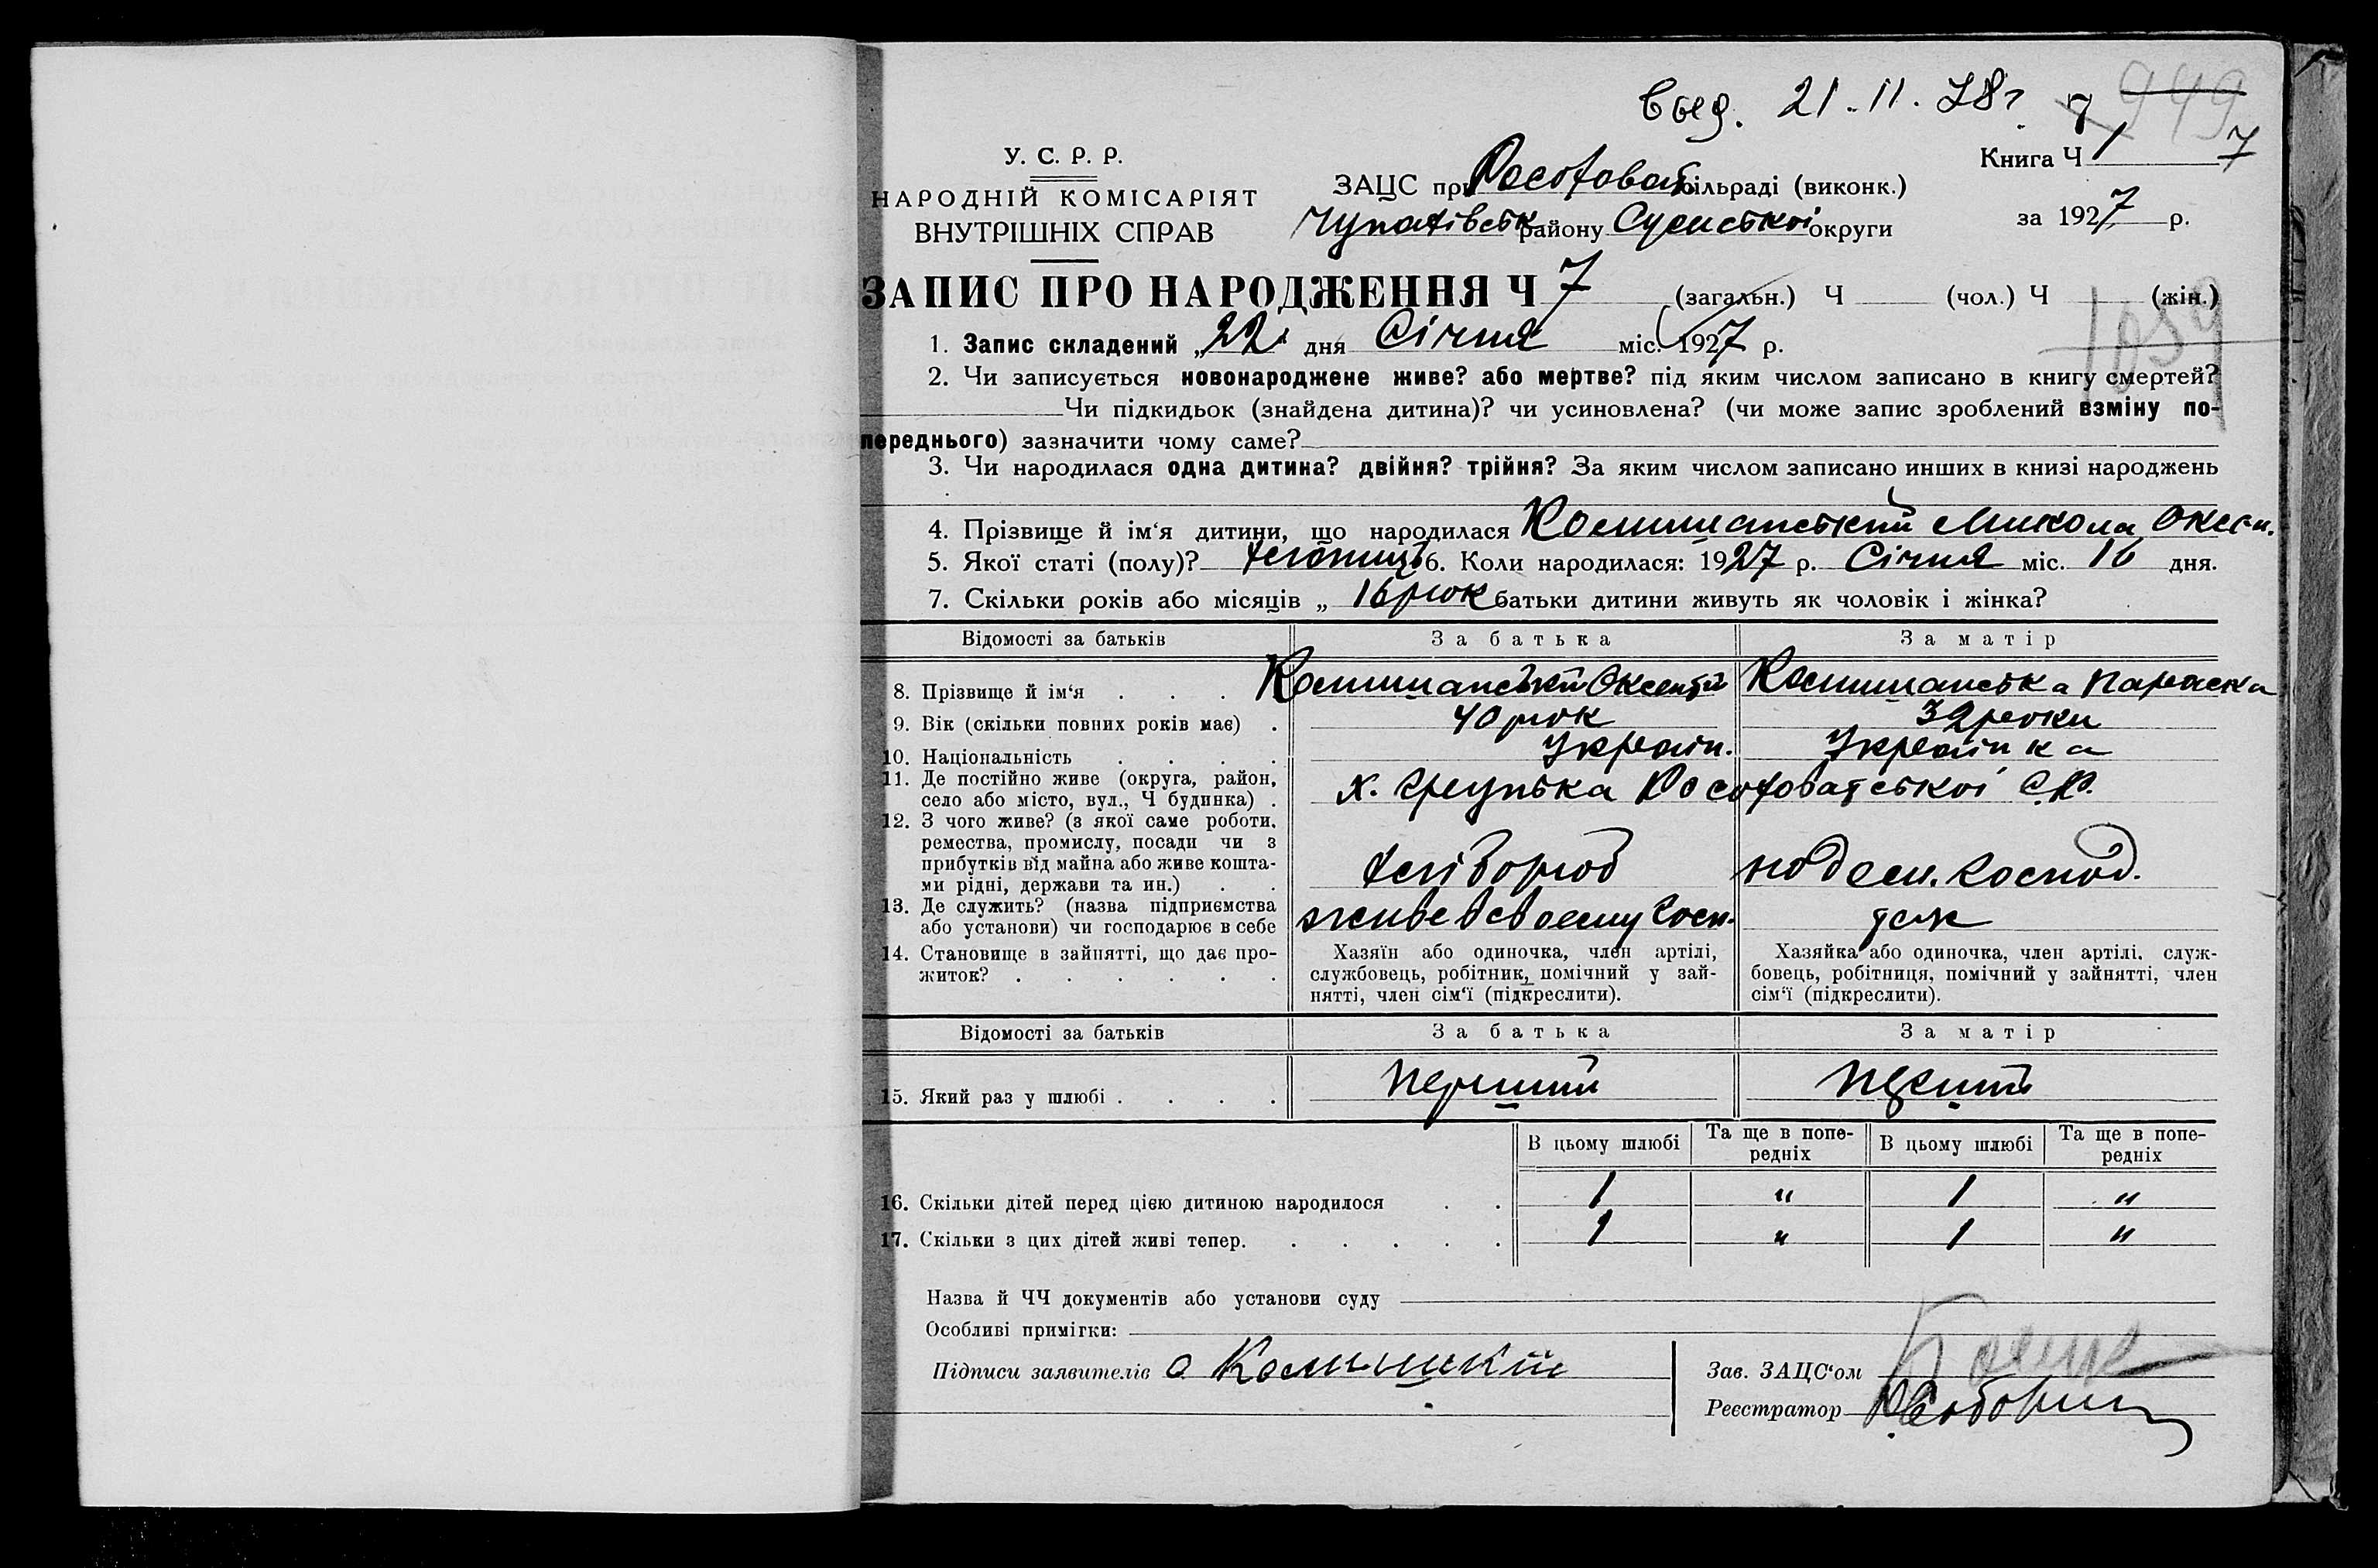 вид. 21. 11. 28 г. 7 949
У. С. Р. Р.
НАРОДНІЙ КОМІСАРІЯТ
ВНУТРІШНІХ СПРАВ
ЗАЦС при Росоховат сільраді (виконк.)
Чупахівськ району Сумської округи
Книга Ч 1 7
за 1927 р.
ЗАПИС ПРО НАРОДЖЕННЯ Ч 7 (загальн.) Ч (чол.) Ч (жін.)
1059
1. Запис складений „22" дня Січня міс. 1927 р.
2. Чи записується новонароджене живе? або мертве? під яким числом записано в книгу смертей?
Чи підкидьок (знайдена дитина)? чи усиновлена? (чи може запис зроблений взміну по-
переднього) зазначити чому саме?
3. Чи народилася одна дитина? двійня? трійня? За яким числом записано инших в книзі народжень
4. Прізвище й ім'я дитини, що народилася Комишанський Микола Оксен.
5. Якої статі (полу)? 6. Коли народилася: 1927 р. Січня міс. 16 дня.
7. Скільки років або місяців „ 16 рок батьки дитини живуть як чоловік і жінка?
Відомості за батьків За батька За матір
8. Прізвище й ім'я . . . Комишанський Оксентій Комишанська Параска
9. Вік (скільки повних років має) . 40 рок 32 роки
10. Національність . . . . Україн. Українка
11. Де постійно живе (округа, район,
село або місто, вул., Ч будинка) . х. Грунька Росоховатської С.Р.
12. З чого живе? (з якої саме роботи,
ремества, промислу, посади чи з
прибутків від майна або живе кошта-
ми рідні, держави та ин.) . . хлібороб подом. господ.
13. Де служить? (назва підприємства
або установи) чи господарює в себе живе в своему госп. теж
14. Становище в зайнятті, що дає про-
житок? . . . . . .
Хазяїн або одиночка, член артілі,
службовець, робітник, помічний у зай-
нятті, член сім'ї (підкреслити).
Хазяйка або одиночка, член артілі, служ-
бовець, робітниця, помічний у зайнятті, член
сім'ї (підкреслити).
Відомості за батьків За батька За матір
15. Який раз у шлюбі . . . . перший
В цьому шлюбі Та ще в попе-
редніх В цьому шлюбі Та ще в попе-
редніх
16. Скільки дітей перед цією дитиною народилося . . 1 " 1 "
17. Скільки з цих дітей живі тепер. . . . . . 1 " 1 "
Назва й ЧЧ документів або установи суду
Особливі примігки:
Підписи заявителів О
Зав. ЗАЦС'ом
Реєстратор